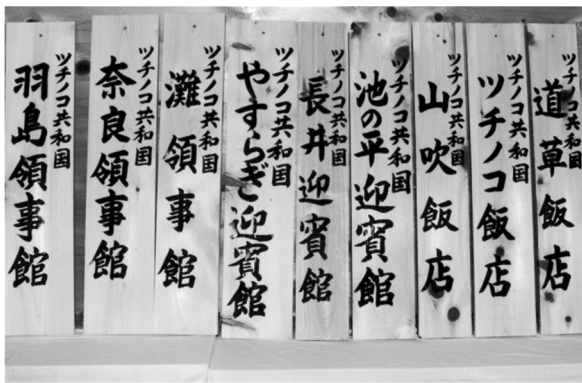 ツチノコ共和国
道草飯店
ツチノコ共和国
ツチノコ飯店
ツチノコ共和国
山吹飯店
ツチノコ共和国
池の平迎賓館
ツチノコ共和国
長井迎賓館
ツチノコ共和国
やすらぎ迎賓館
ツチノコ共和国
灘領事館
ツチノコ共和国
奈良領事館
ツチノコ共和国
羽島領事館